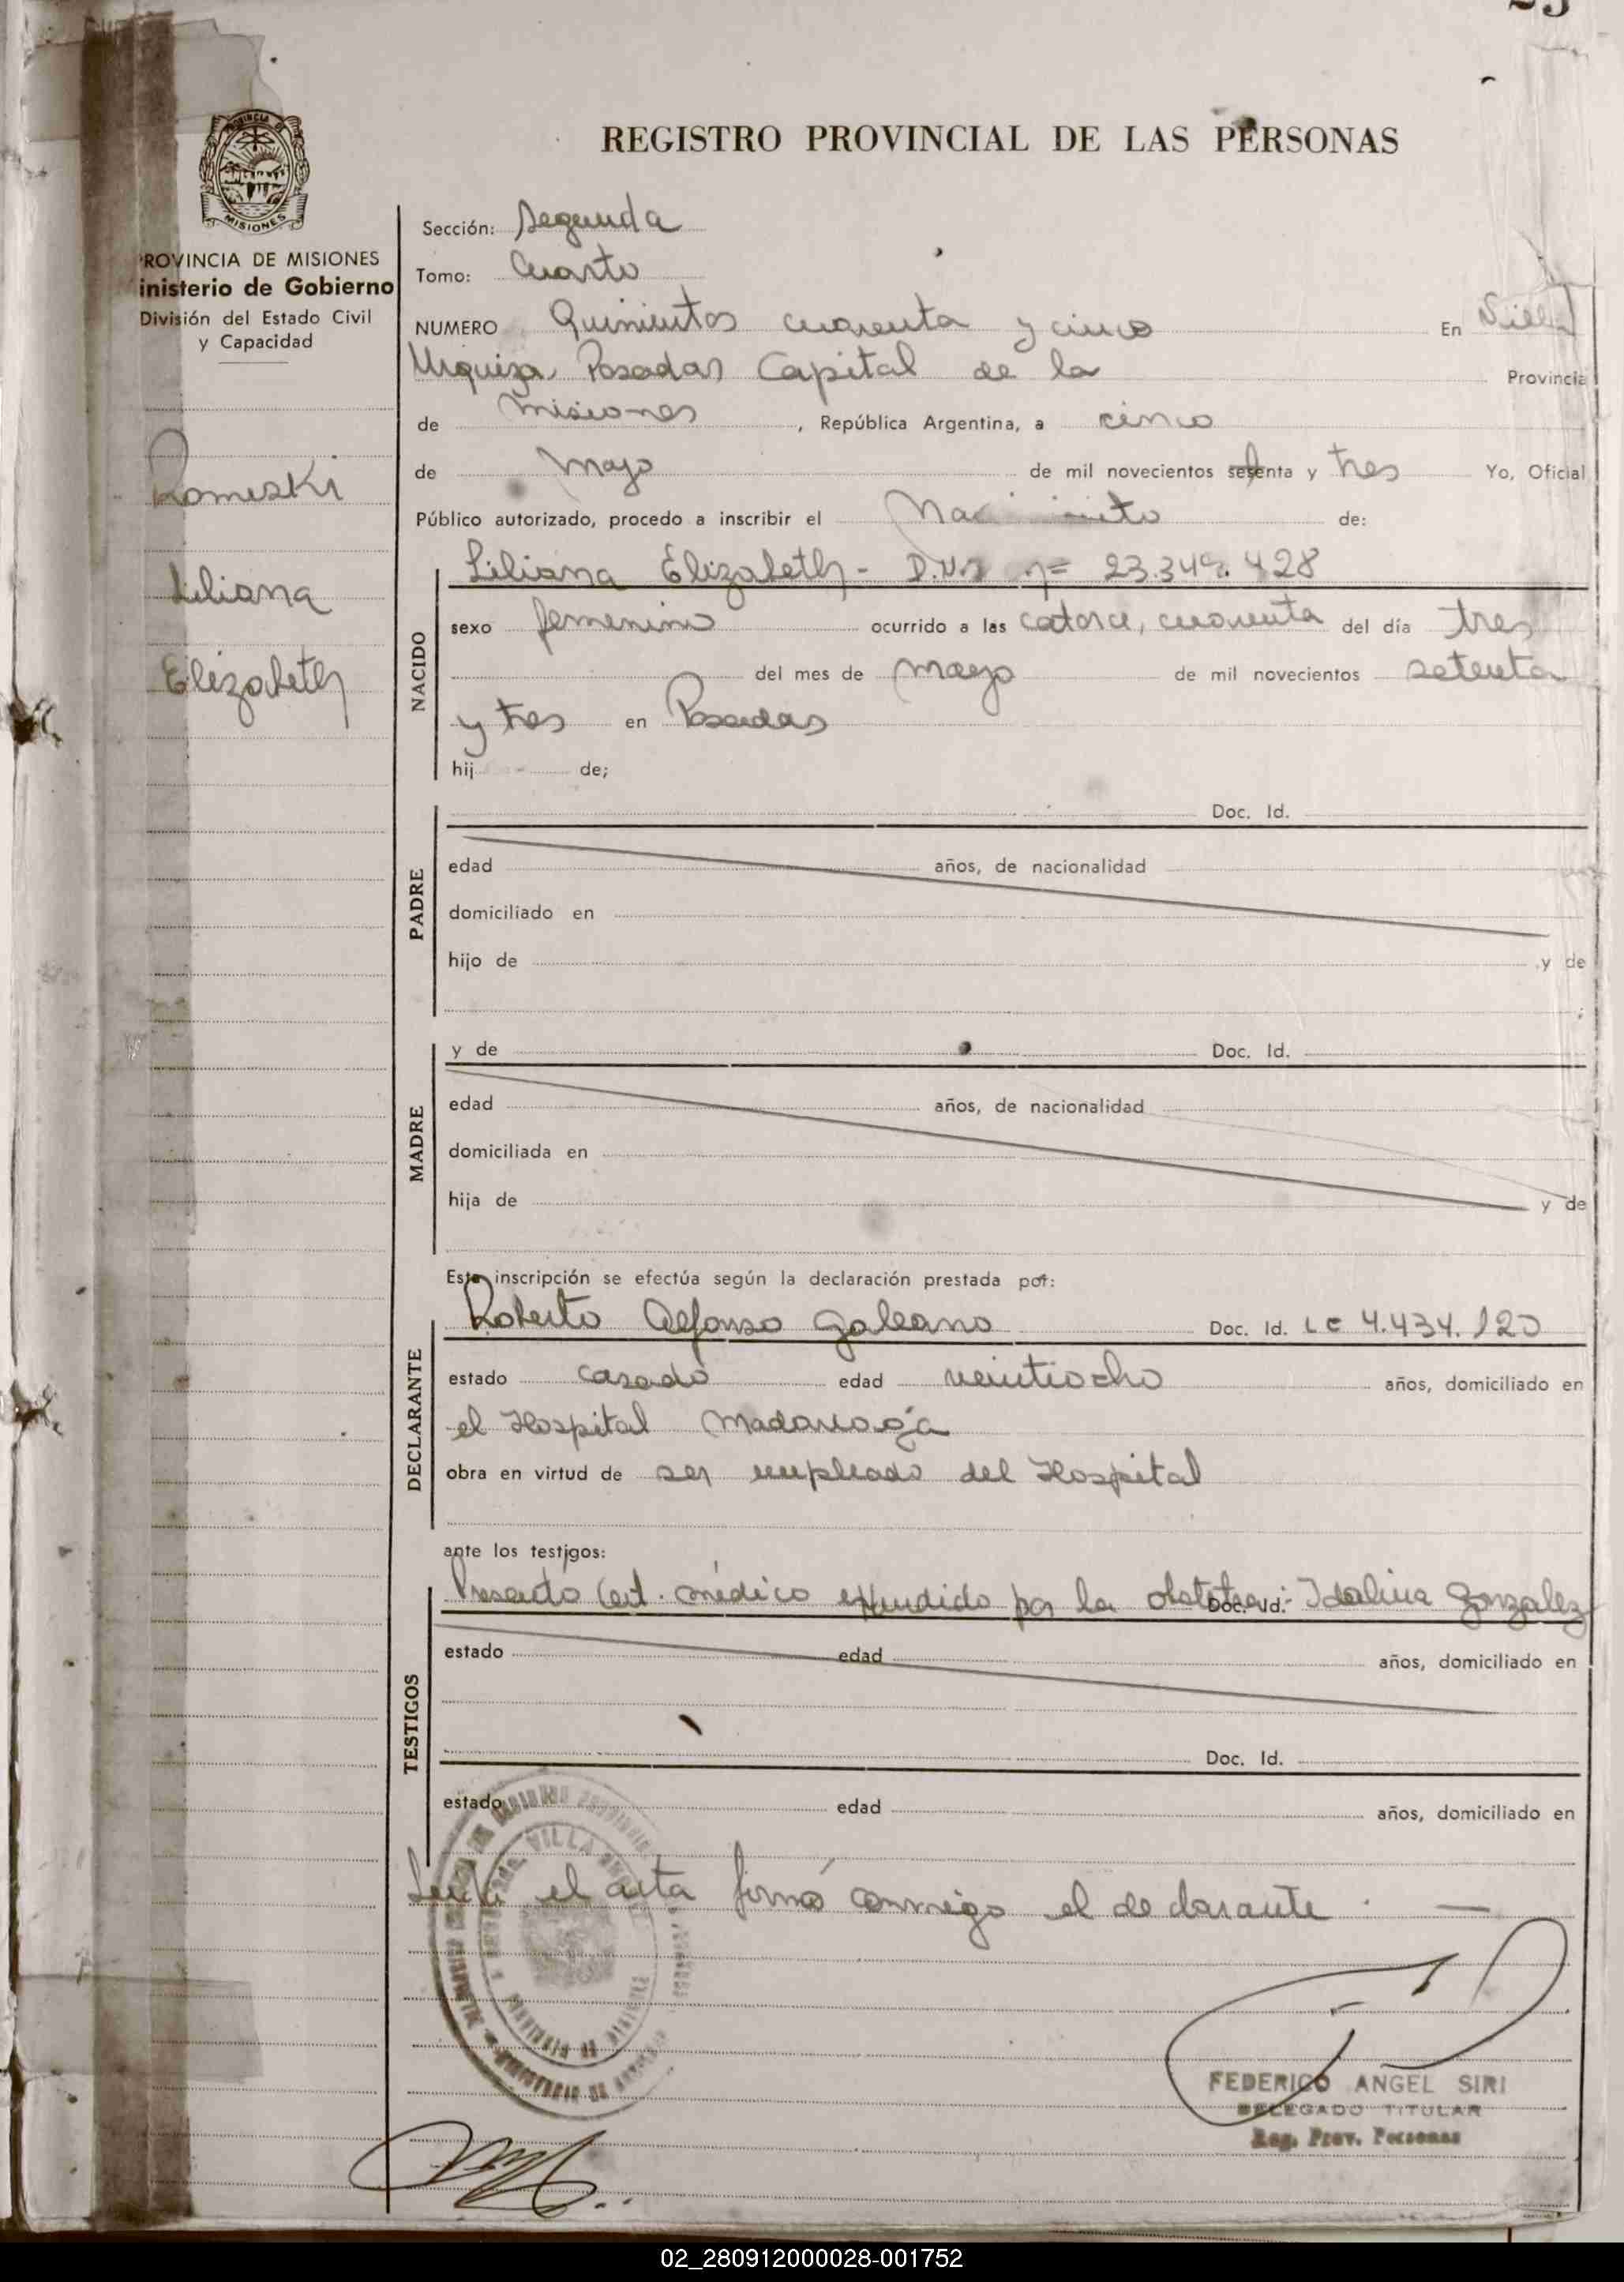 REGISTRO PROVINCIAL DE LAS PERSONAS
PROVINCIA DE
MISIONES
PROVINCIA DE MISIONES
inisterio de Gobierno
División del Estado Civil
y Capacidad
Romeski
Liliana
Elizabeth
Sección: Segunda
Tomo: Cuarto
NUMERO Quinientos cuarenta y cinco En Villa
Urquiza, Posadas Capital de la Provincia
de Misiones, República Argentina, a cinco
de Mayo de mil novecientos setenta y tres Yo, Oficial
Público autorizado, procedo a inscribir el de:
NACIDO
Liliana Elizabeth - 428
sexo femenino ocurrido a las catorce, cuarenta del día tres
del mes de mayo de mil novecientos setenta
y tres en Posadas
hij de;
PADRE
Doc. Id.
edad años, de nacionalidad
domiciliado en
hijo de y de
;
MADRE
y de Doc. Id.
edad años, de nacionalidad
domiciliada en
hija de y de
Esta inscripción se efectúa según la declaración prestada por:
DECLARANTE
Roberto Alfonso Galeano Doc. Id. LE 4.434.120
estado casado edad veintiocho años, domiciliado en
el Hospital Madariaga
obra en virtud de ser empleado del Hospital
ante los testigos:
TESTIGOS
Presentó Cert. médico expendido por la Doc. Id. Idalina Gonzalez
estado edad años, domiciliado en
Doc. Id.
estado edad años, domiciliado en
VILLA
Leida el acta firmó conmigo el declarante. —
FEDERICO ANGEL SIRI
DELEGADO TITULAR
Reg. Prov. Personas
02_280912000028-001752